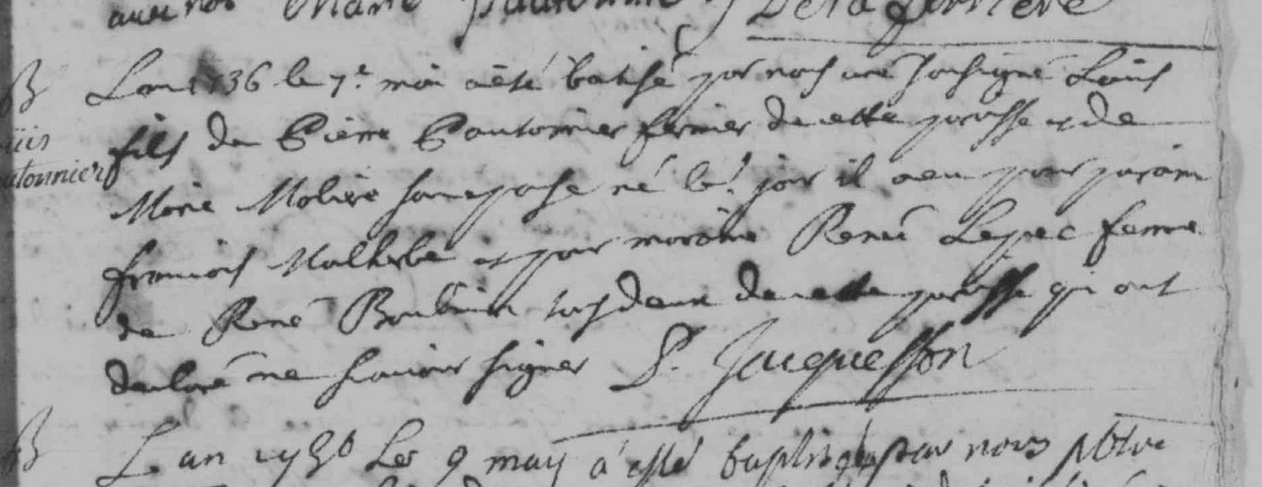 avec nos Marie De la ferriere
B
Lan 1736 le 7e mai a été batisé par nous curé soussigné Loüis
Loüis
fils de Pierre Pautonnier fermier de cette paroisse et de
pautonnier
Marie Moliere son epouse né le d. jour il a eu pour parain
francois Malherbe et pour maraine Renée Lepec femme
de René tous deux de cette paroisse qui ont
declaré ne scavoir signer P. Jacquesson
B
Lan Le 9 may a esté baptisé par nous pbtre